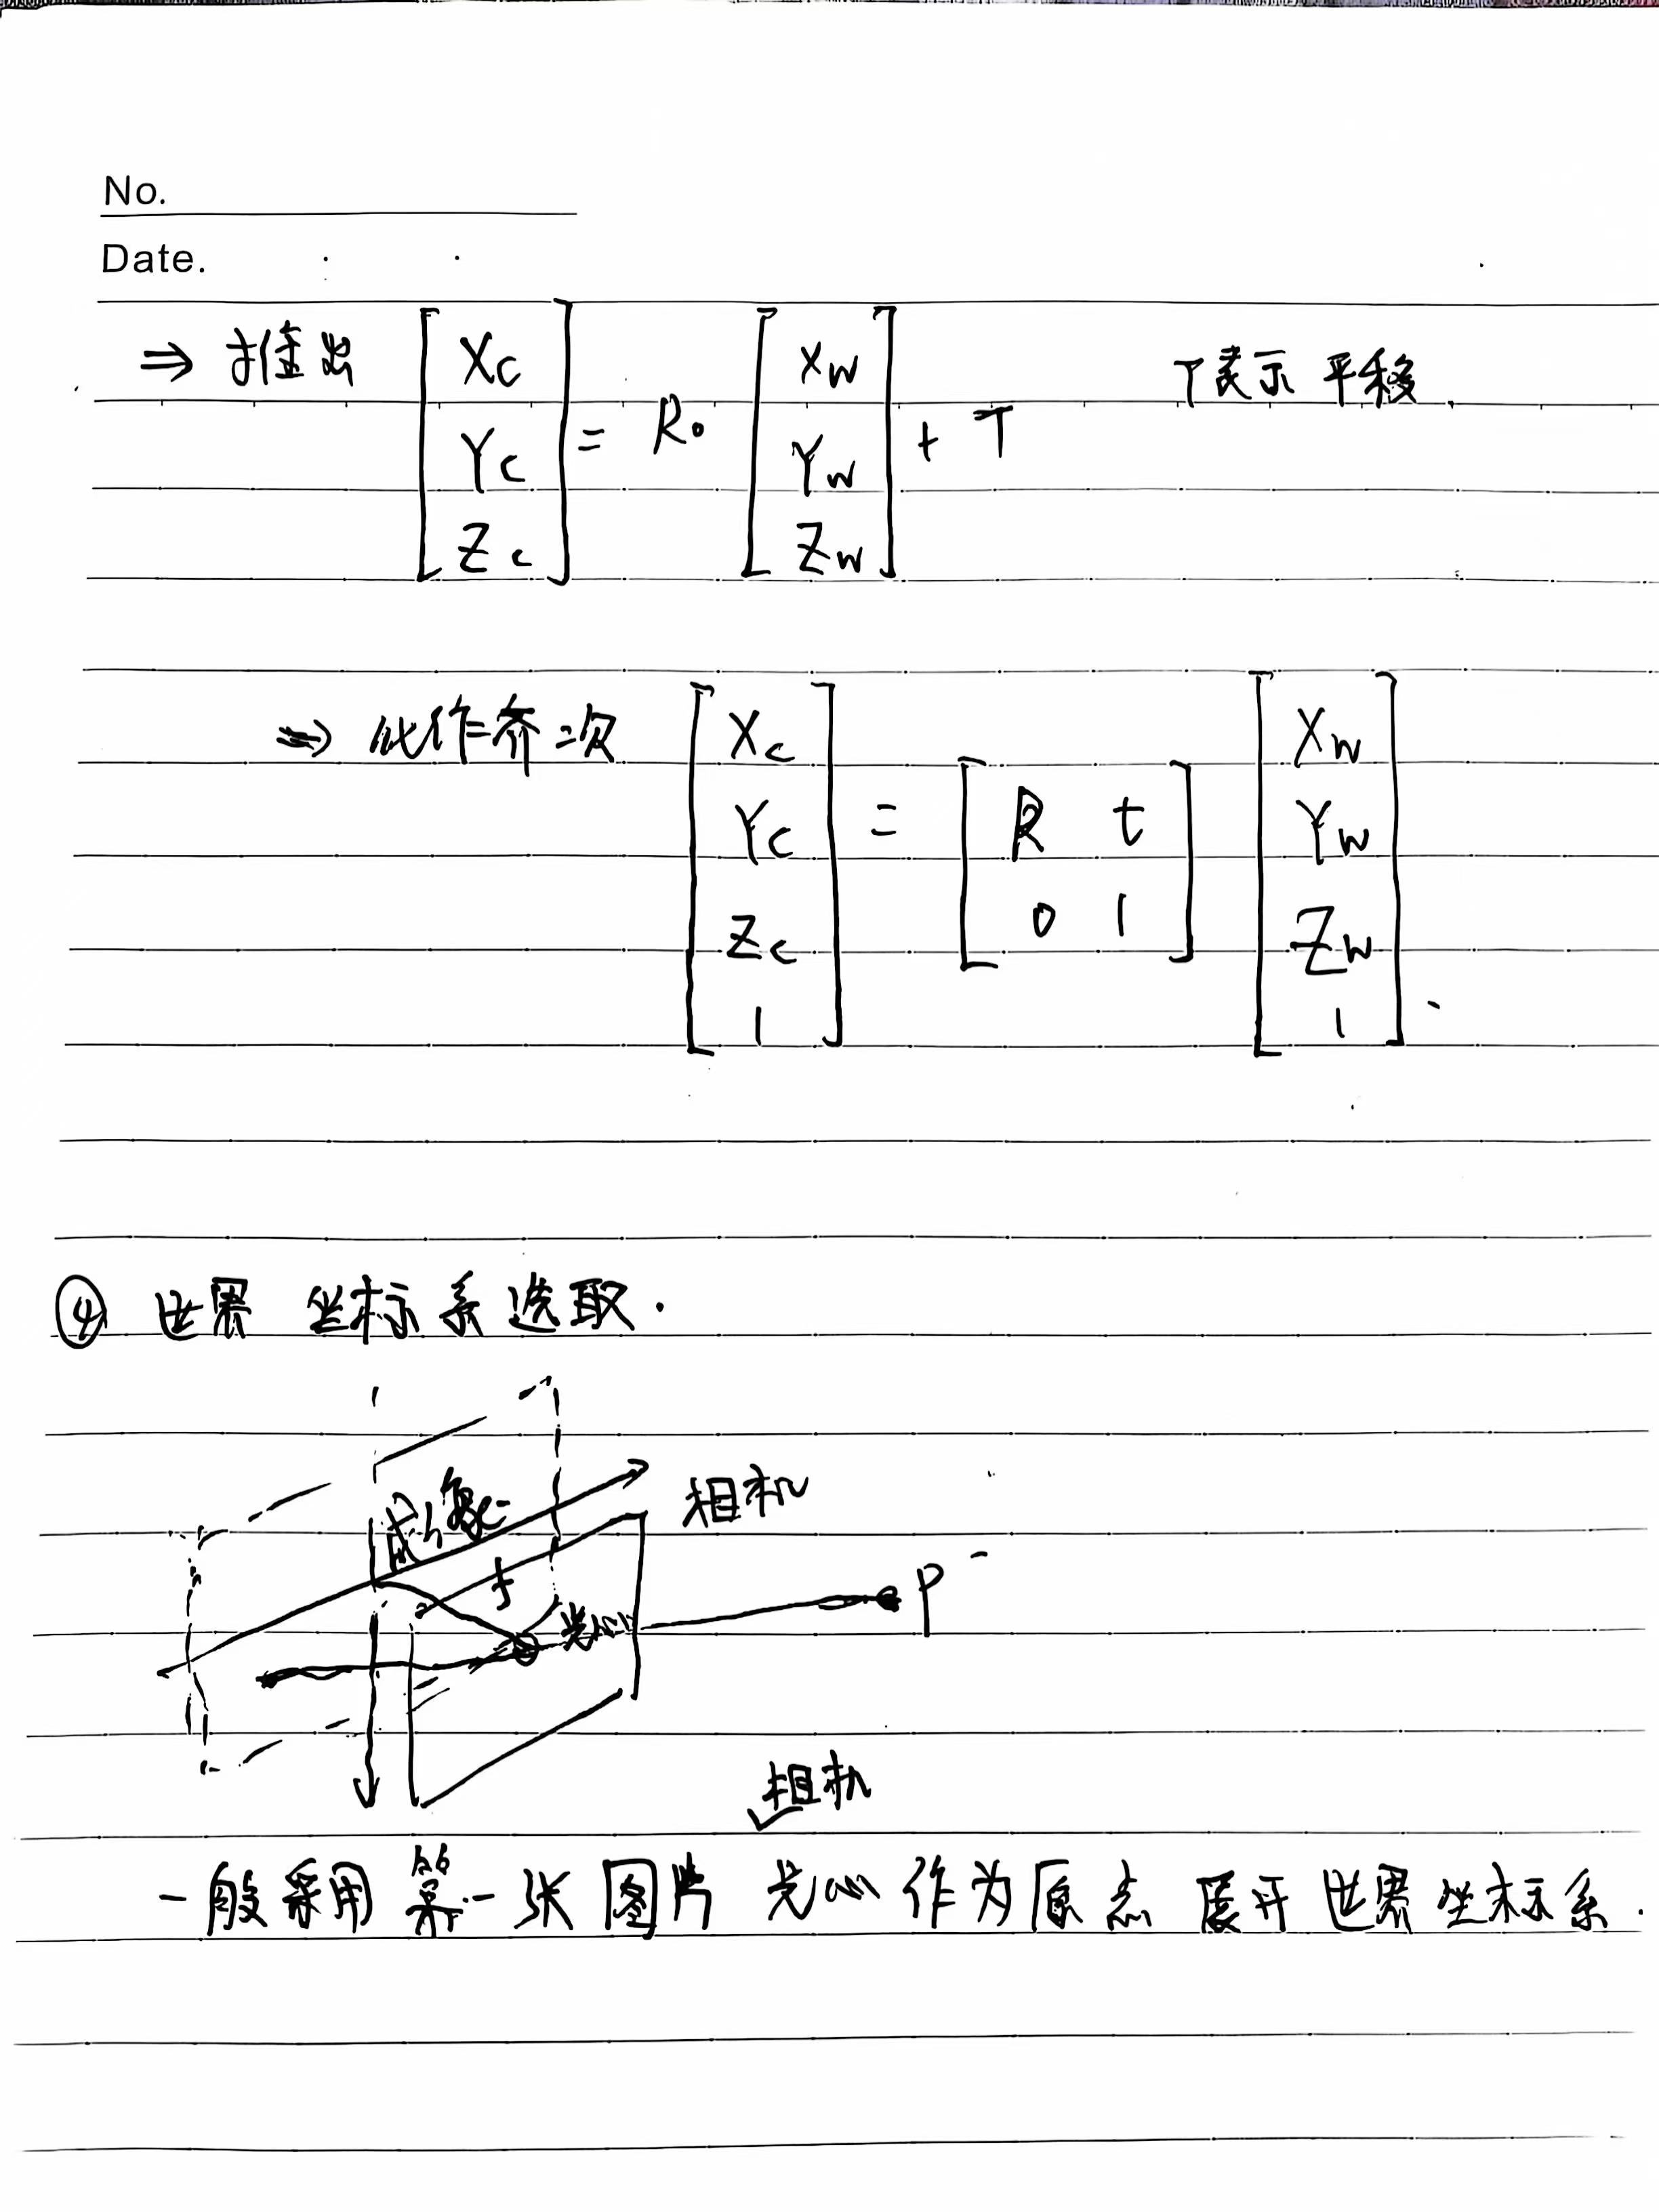 No.
Date.
⇒ 推出 [Xc Yc Zc] = R· [Xw Yw Zw] + T T表示平移.
⇒ 化作齐次 [Xc Yc Zc 1] = [R t 0 1] [Xw Yw Zw 1].
④ 世界坐标系选取.
成像
相机
f
光心
P
相机
一般采用第一张图片光心作为原点展开世界坐标系.